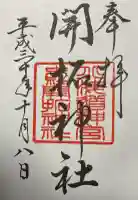 奉拝
開拓神社
平成三十年十月八日